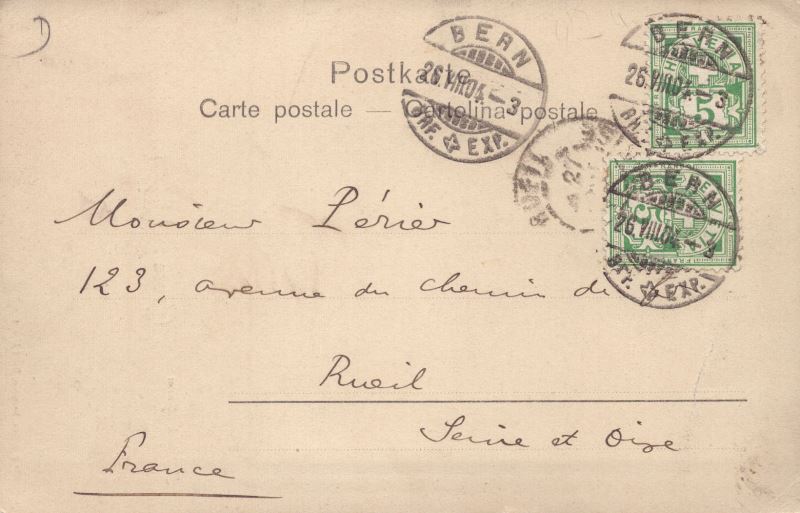 Postkarte
Carte postale — Cartolina postale
BERN
26.VIII.04.–3
BRF. EXP.
BERN
26.VIII.04.–3
EXP.
5
RUEIL
27
BERN
26.VIII.04.
BRF. EXP.
FRANCO
Monsieur Périer
123, avenue du Chemin de fer
Rueil
Seine et Oise
France